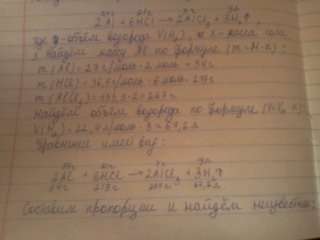 2Al + 6HCl → 2AlCl₃ + 3H₂,
где y - объём водорода V(H₂), x - масса
найдём массу Al по формуле (m = M·n):
m(Al) = 27 г/моль · 2 моль = 54 г
m(HCl) = 36,5 г/моль · 6 моль = 219
m(AlCl₃) = 133,5 · 2 = 267 г
Найдём объём водорода по формуле
V(H₂) = 22,4 л/моль · 3 = 67,2 л
Уравнение имеет вид:
2Al + 6HCl → 2AlCl₃ + 3H₂
54г 219г 267г 67,2л
Составим пропорции и найдём неизвестн: